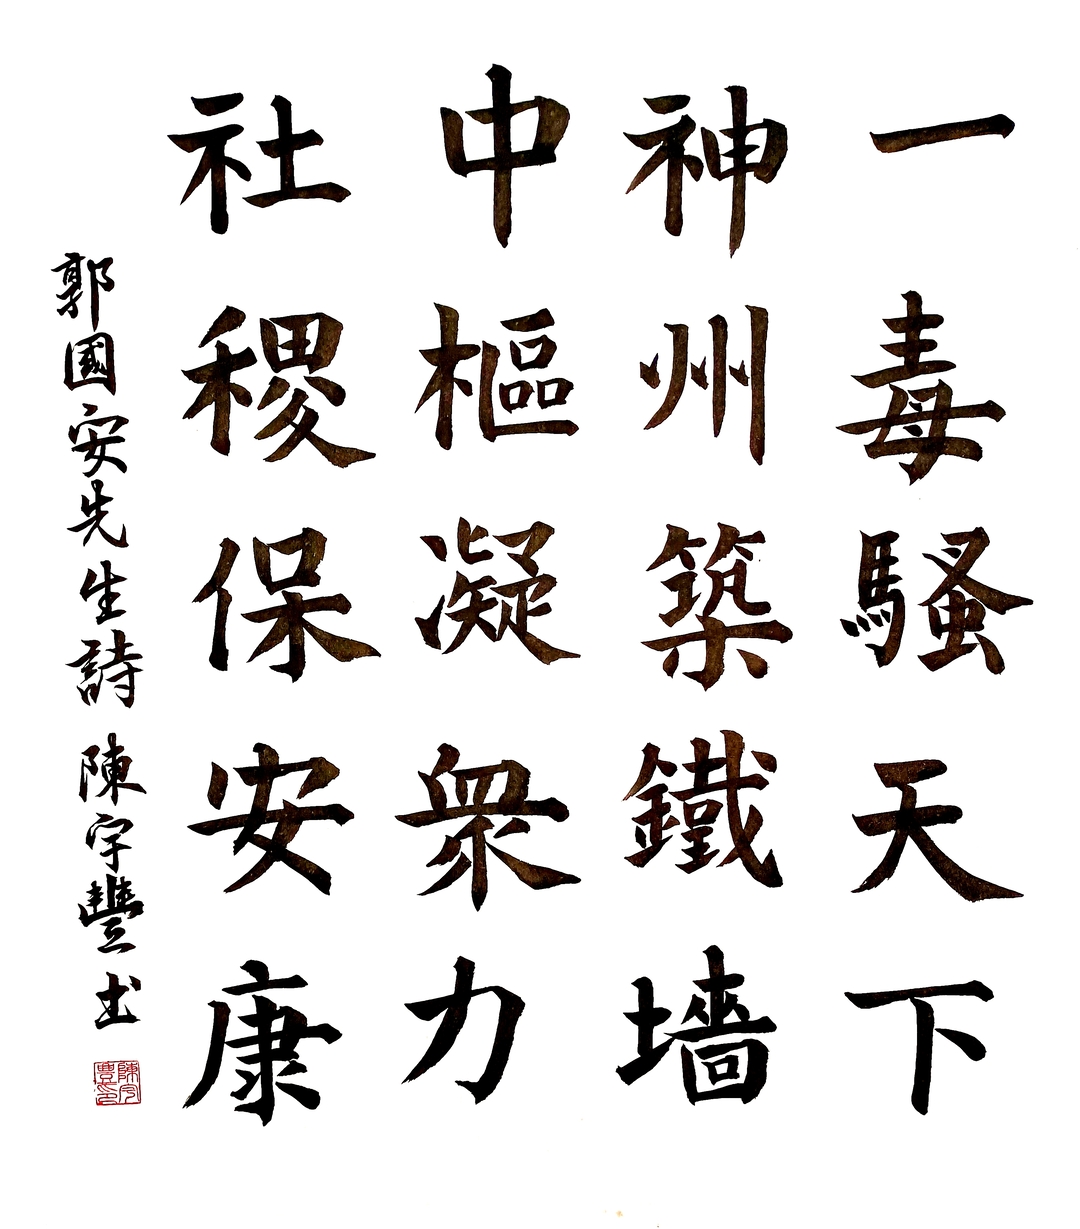 一毒騷天下
神州築鐵墻
中樞凝眾力
社稷保安康
郭國安先生詩 陳宇豐书
陳宇豐印